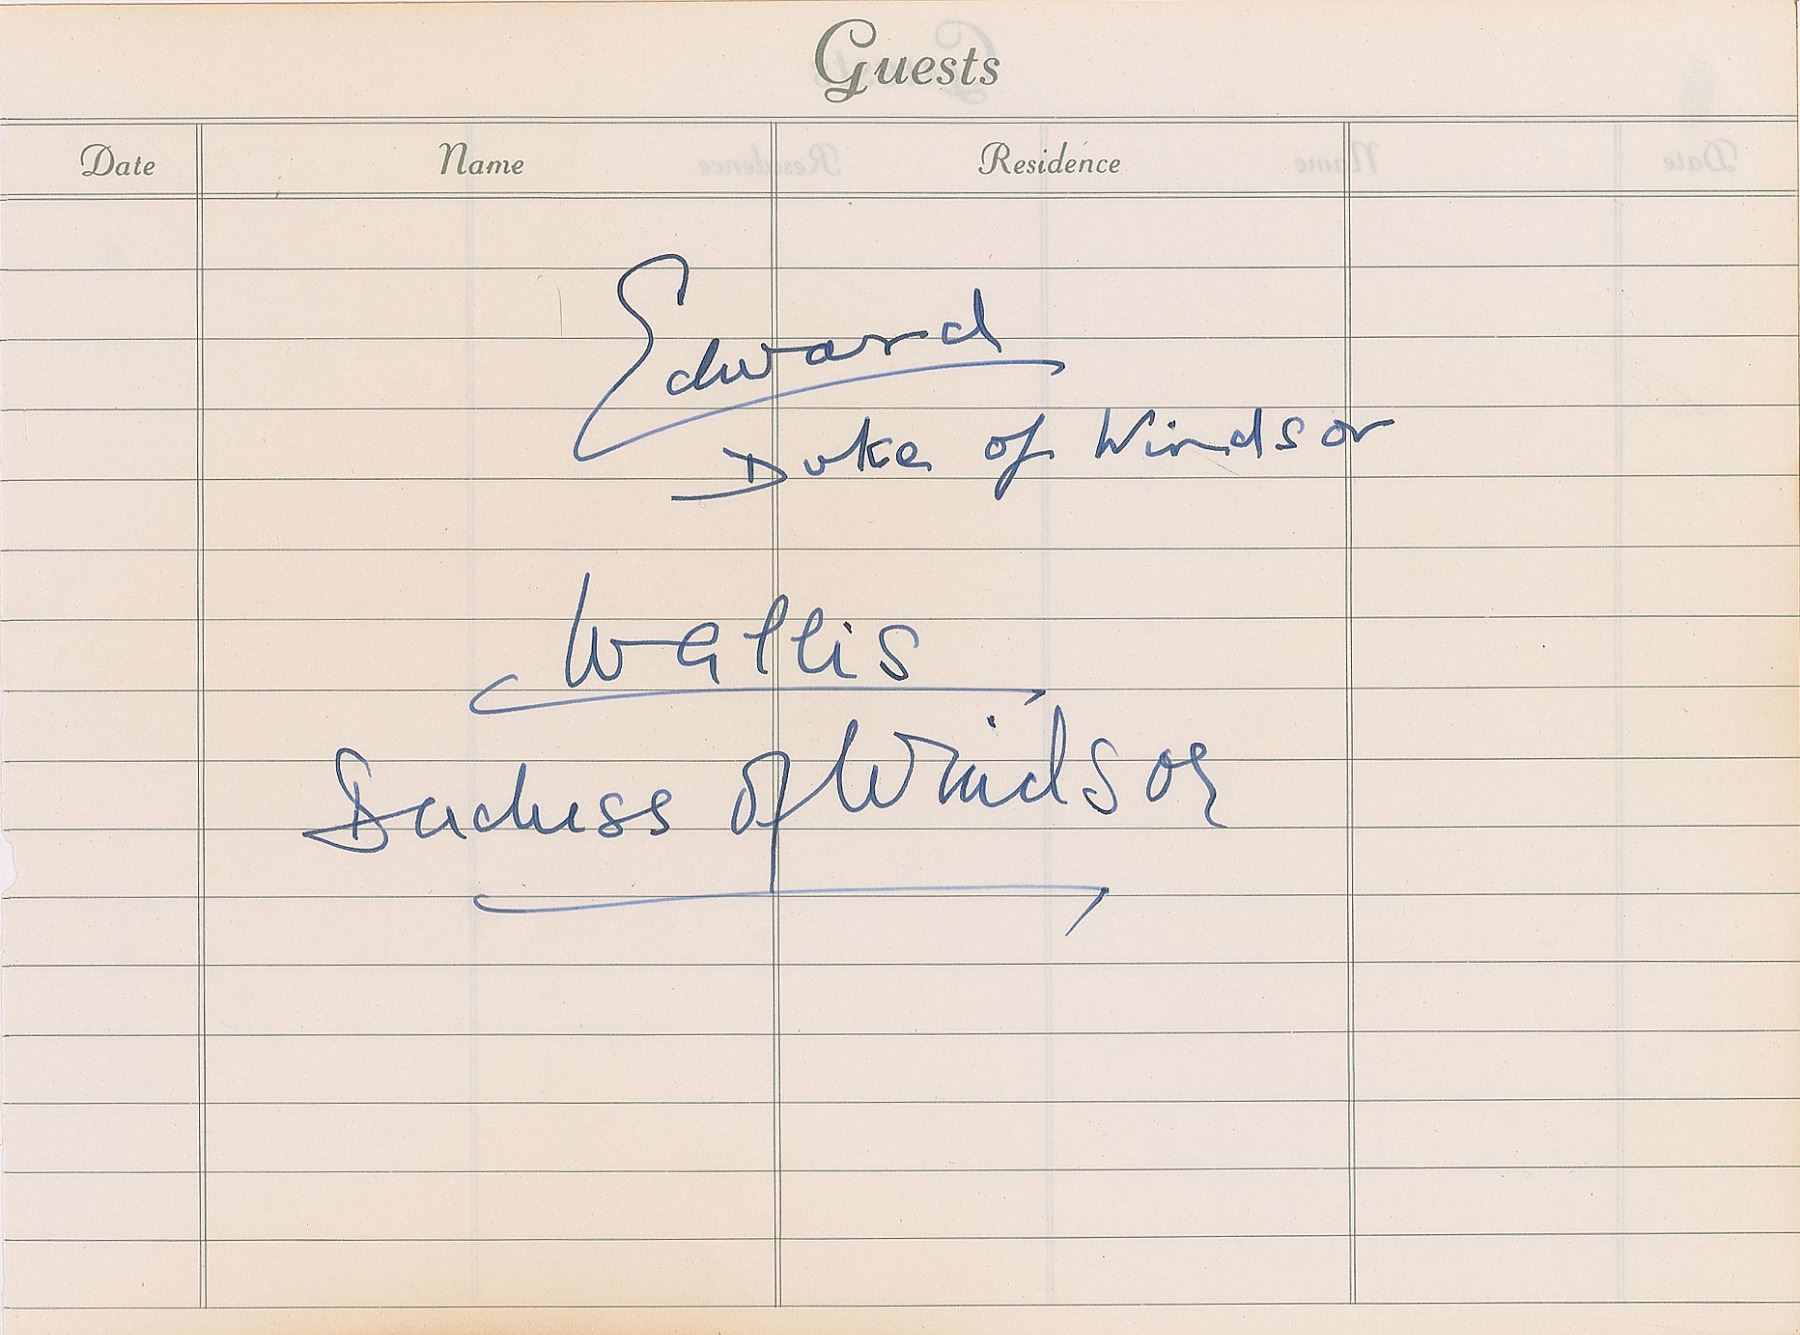 Guests
Date Name Residence
Edward
Duke of Windsor
Wallis
Duchess of Windsor